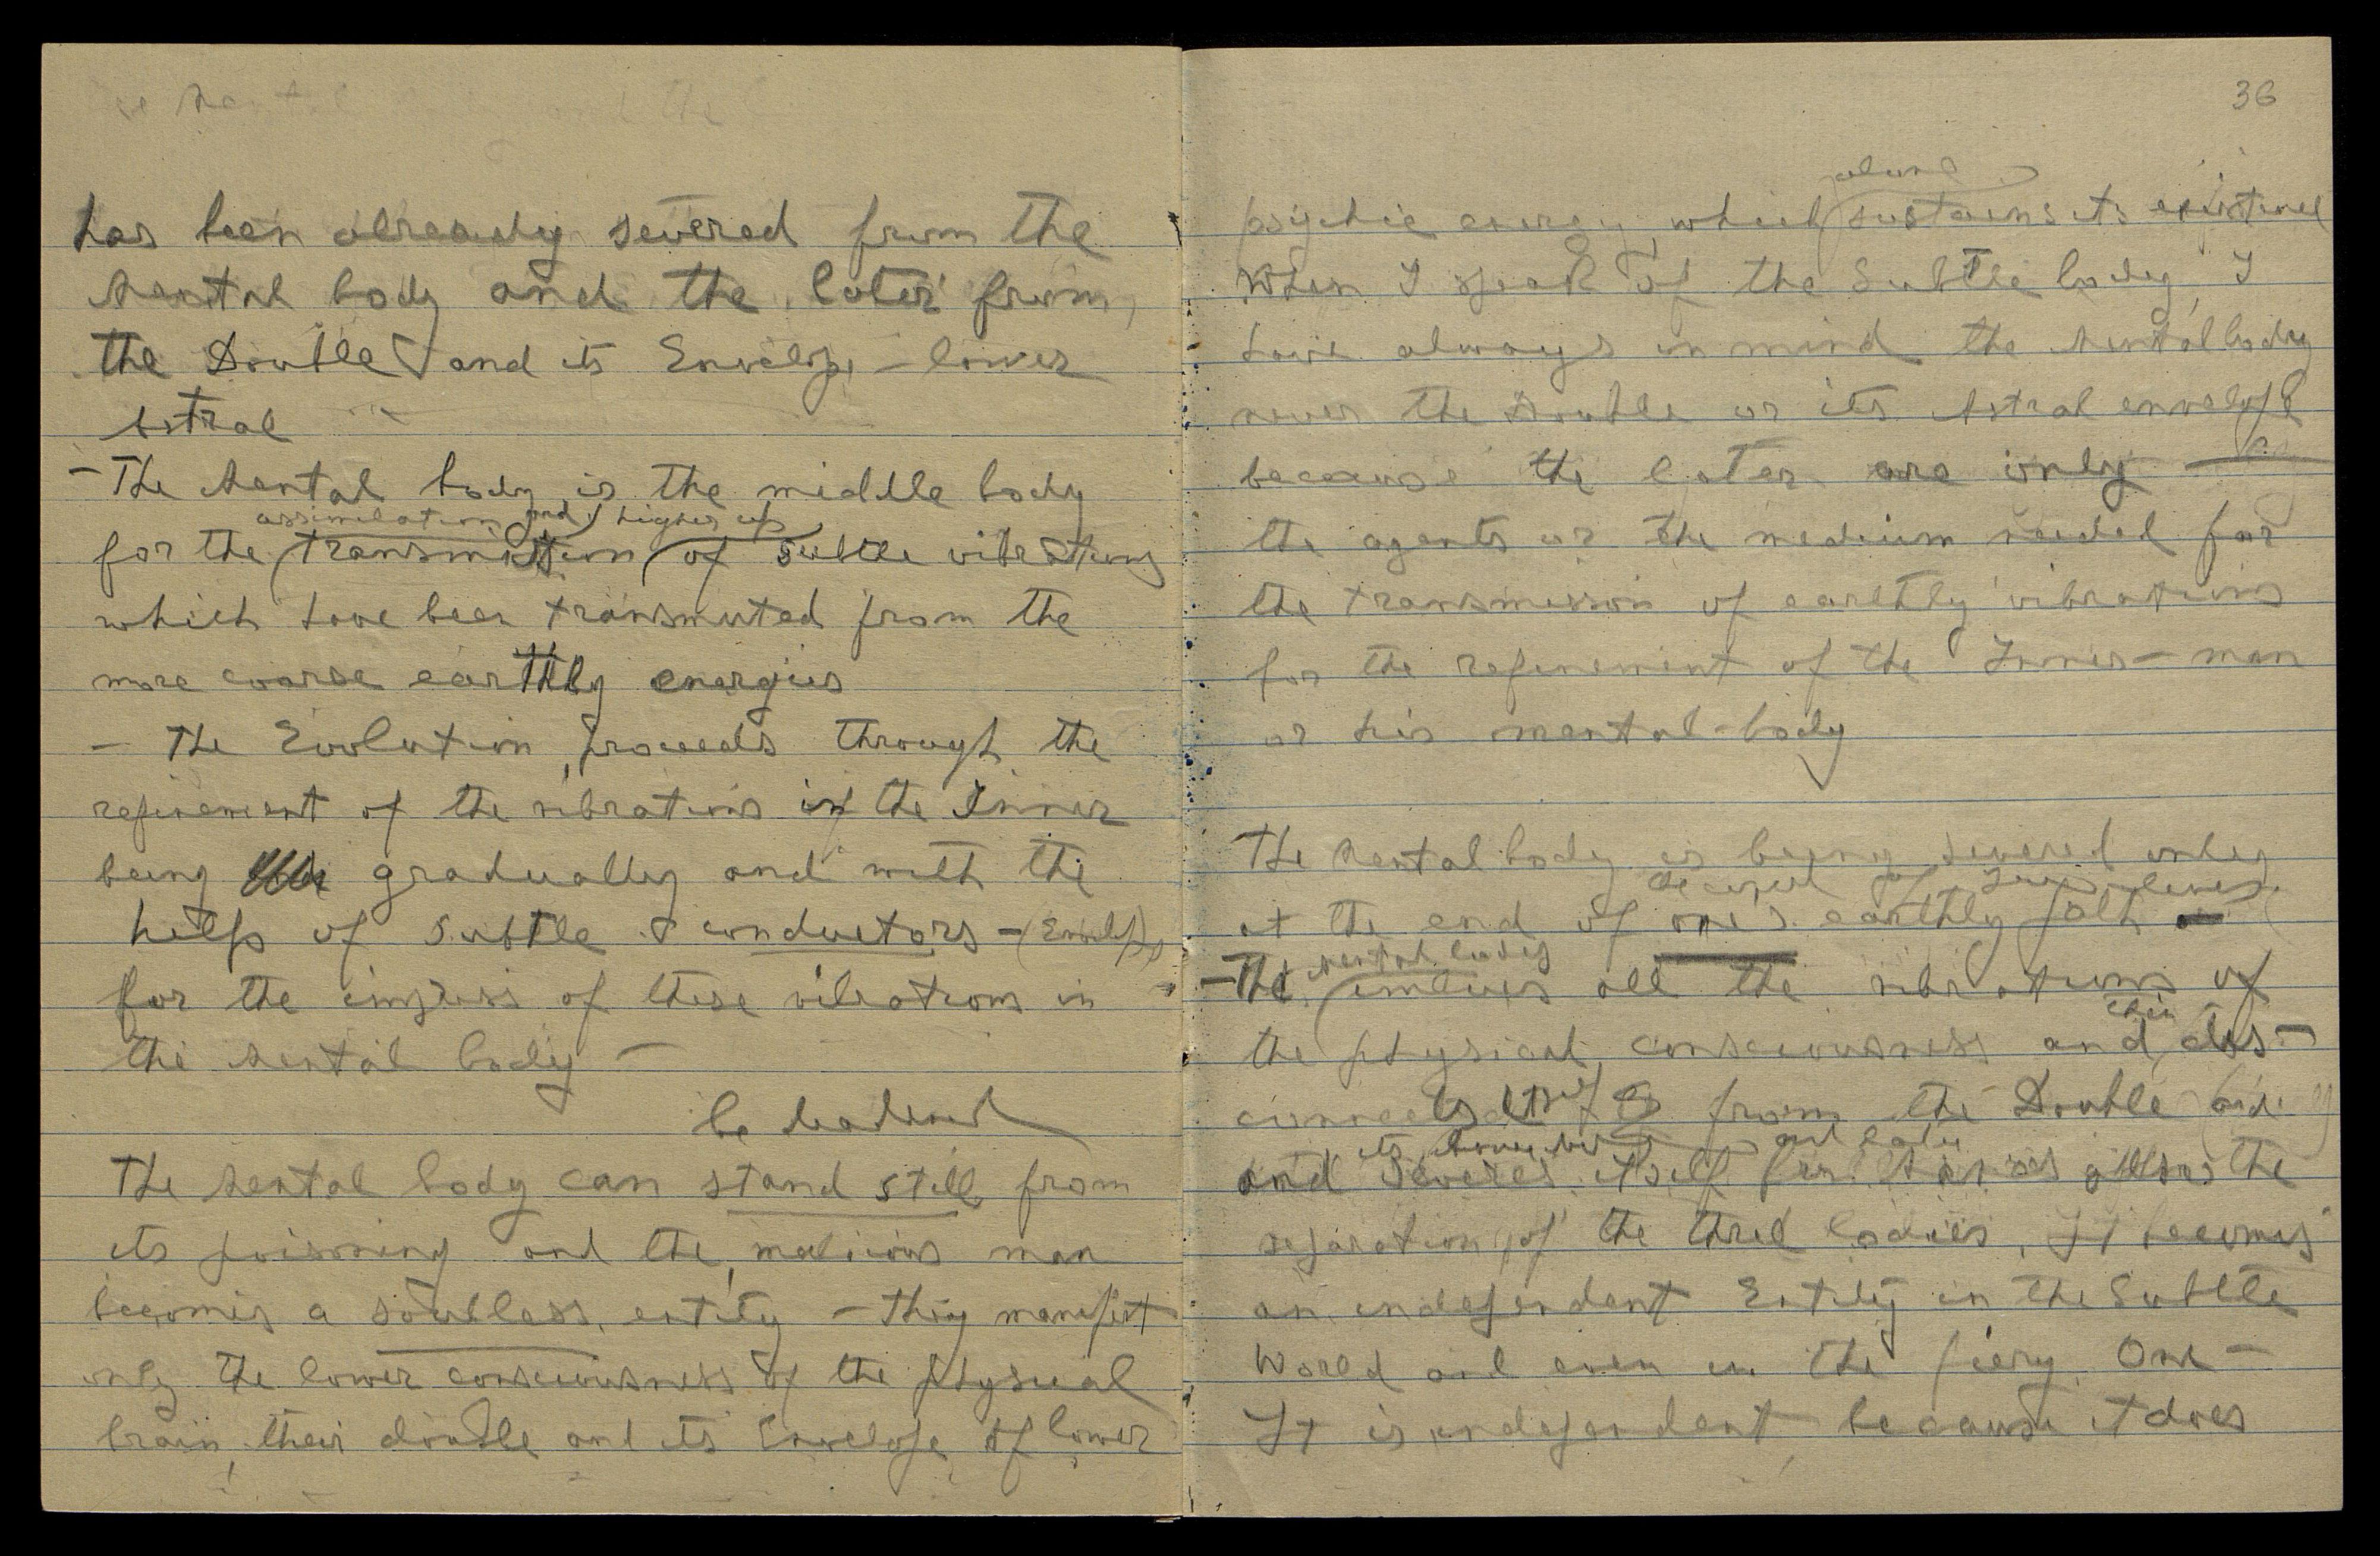 has been already severed from the
Mental body and the later from
the Double and its Envelope - lower
Astral
- The Mental body is the middle body
assimilation and higher up
for the transmission of subtle vibrations
which have been transmuted from the
more coarse earthly energies
- The Evolution, proceeds through the
refinement of the vibrations in the Inner
being gradually and with the
help of subtle conductors - (Envelope)
for the ingress of these vibrations in
the Mental body -
be
The Mental body can stand still from
its poisoning and the malicious man
becomes a soulless entity - they manifest
only the lower consciousness of the physical
brain, their double and its Envelope of lower
36
alone
psychic energy, which sustains its existence
When I speak of the Subtle body, I
have always in mind the Mental body
never the Double or its Astral envelope
because the later are only - as
the agents or the medium needed for
the transmission of earthly vibrations
for the refinement of the Inner-man
or his mental-body
The Mental body is being severed only
at the end of one's earthly path
mental body
- The imbues all the vibrations of
then
the physical consciousness and dis-
connects itself from the Double and
its and
and severes itself the
separation of the three bodies, It becomes
an independent Entity in the Subtle
World and even in the fiery One -
It is independent, because it does